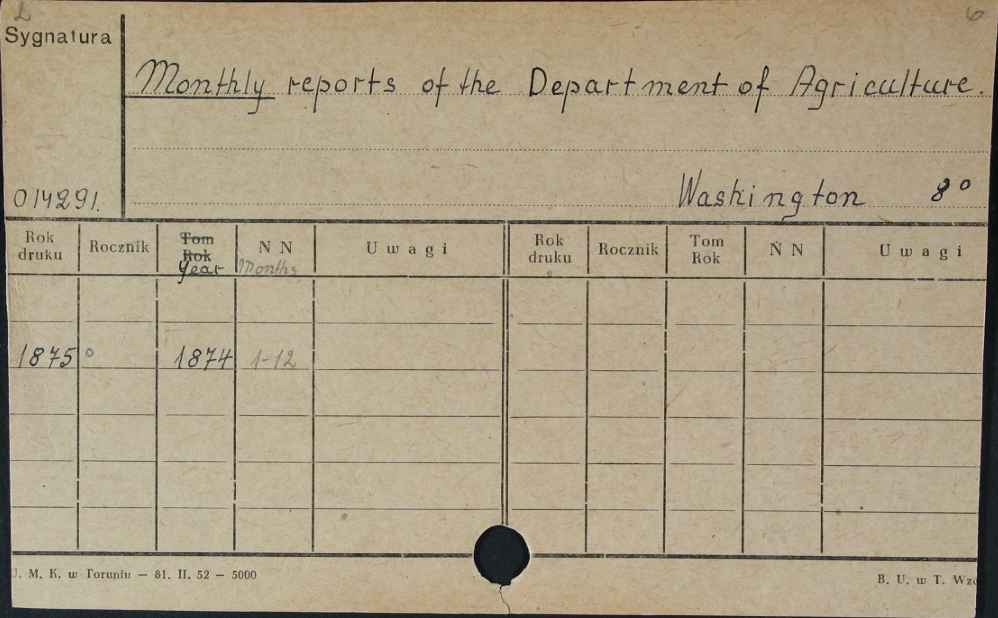 Sygnatura
Monthly reports of the Department of Agriculture.
014291.
Washington 8°
Rok druku Rocznik Tom Rok Year N N Months Uwagi Rok druku Rocznik Tom Rok N N Uwagi
1875° 1874 1-12
U. M. K. w Toruniu — 81. II. 52 — 5000
B. U. w T.